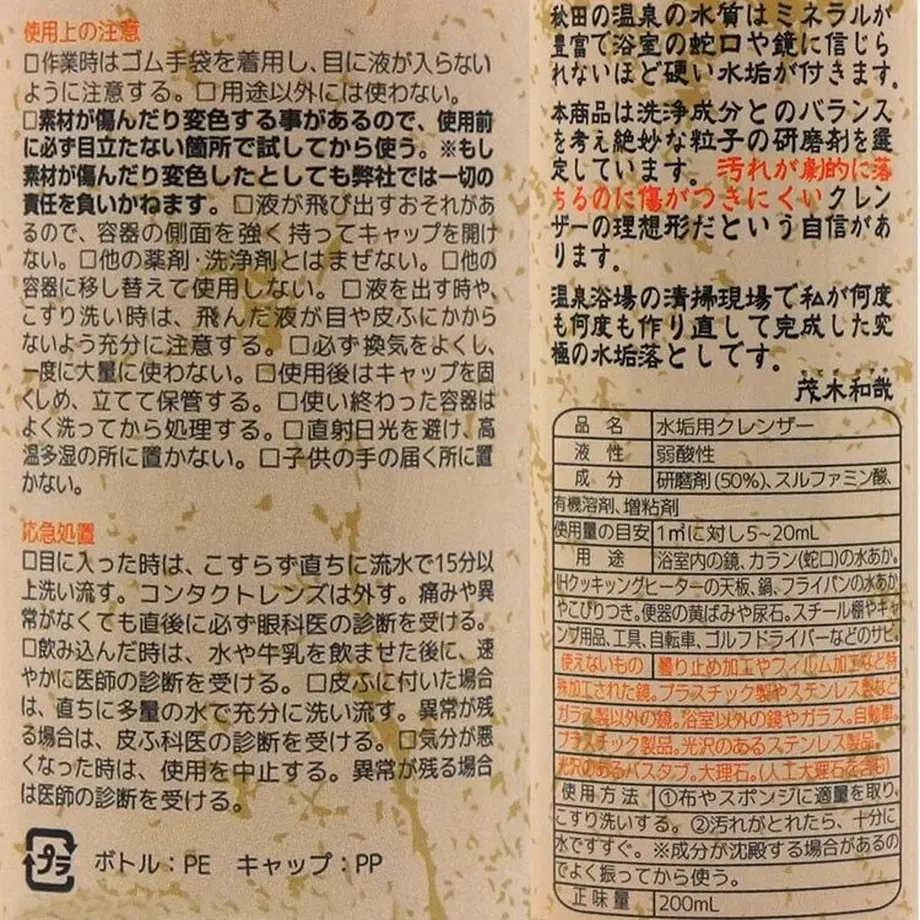 使用上の注意
□作業時はゴム手袋を着用し、目に液が入らない
ように注意する。□用途以外には使わない。
□素材が傷んだり変色する事があるので、使用前
に必ず目立たない箇所で試してから使う。※もし
素材が傷んだり変色したとしても弊社では一切の
責任を負いかねます。□液が飛び出すおそれがあ
るので、容器の側面を強く持ってキャップを開け
ない。□他の薬剤・洗浄剤とはまぜない。□他の
容器に移し替えて使用しない。□液を出す時や、
こすり洗い時は、飛んだ液が目や皮ふにかから
ないよう充分に注意する。□必ず換気をよくし、
一度に大量に使わない。□使用後はキャップを固
くしめ、立てて保管する。□使い終わった容器は
よく洗ってから処理する。□直射日光を避け、高
温多湿の所に置かない。□子供の手の届く所に置
かない。
応急処置
□目に入った時は、こすらず直ちに流水で15分以
上洗い流す。コンタクトレンズは外す。痛みや異
常がなくても直後に必ず眼科医の診断を受ける。
□飲み込んだ時は、水や牛乳を飲ませた後に、速
やかに医師の診断を受ける。□皮ふに付いた場合
は、直ちに多量の水で充分に洗い流す。異常が残
る場合は、皮ふ科医の診断を受ける。□気分が悪
くなった時は、使用を中止する。異常が残る場合
は医師の診断を受ける。
プラ ボトル：PE キャップ：PP
秋田の温泉の水質はミネラルが
豊富で浴室の蛇口や鏡に信じら
れないほど硬い水垢が付きます。
本商品は洗浄成分とのバランス
を考え絶妙な粒子の研磨剤を選
定しています。汚れが劇的に落
ちるのに傷がつきにくいクレン
ザーの理想形だという自信があ
ります。
温泉浴場の清掃現場で私が何度
も何度も作り直して完成した究
極の水垢落としです。
茂木和哉
品名 水垢用クレンザー
液性 弱酸性
成分 研磨剤(50%)、スルファミン酸、
有機溶剤、増粘剤
使用量の目安 1㎡に対し5~20mL
用途 浴室内の鏡、カラン(蛇口)の水あか。
IHクッキングヒーターの天板、鍋、フライパンの水あか
やこびりつき。便器の黄ばみや尿石。スチール棚やキャ
ンプ用品、工具、自転車、ゴルフドライバーなどのサビ。
使えないもの 曇り止め加工やフィルム加工など特
殊加工された鏡。プラスチック製やステンレス製など
ガラス製以外の鏡。浴室以外の鏡やガラス。自動車。
プラスチック製品。光沢のあるステンレス製品。
光沢のあるバスタブ。大理石。(人工大理石を含む)
使用方法 ①布やスポンジに適量を取り、
こすり洗いする。②汚れがとれたら、十分に
水ですすぐ。※成分が沈殿する場合があるの
でよく振ってから使う。
正味量 200mL